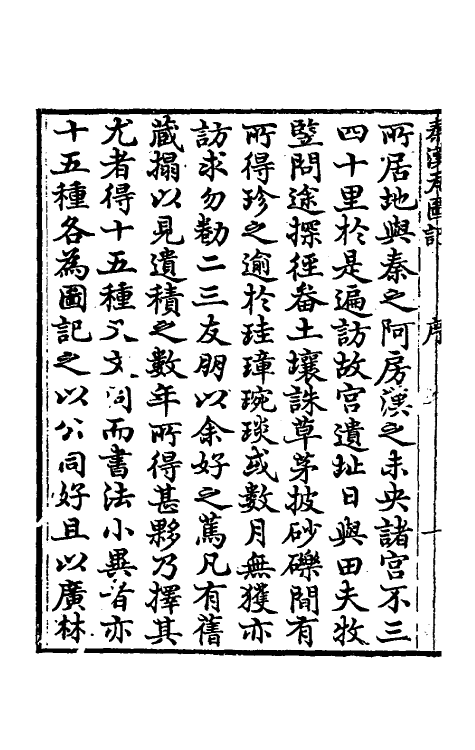 秦漢瓦圖記　序　一
所居地與秦之阿房漢之未央諸宮不三
四十里於是遍訪故宮遺址日與田夫牧
豎問途探徑畚土壤誅草茅披砂礫間有
所得珍之逾於珪璋琬琰或數月無獲亦
訪求勿勌二三友朋以余好之篤凡有舊
藏搨以見遺積之數年所得甚夥乃擇其
尤者得十五種又文同而書法小異者亦
十五種各為圖記之以公同好且以廣林